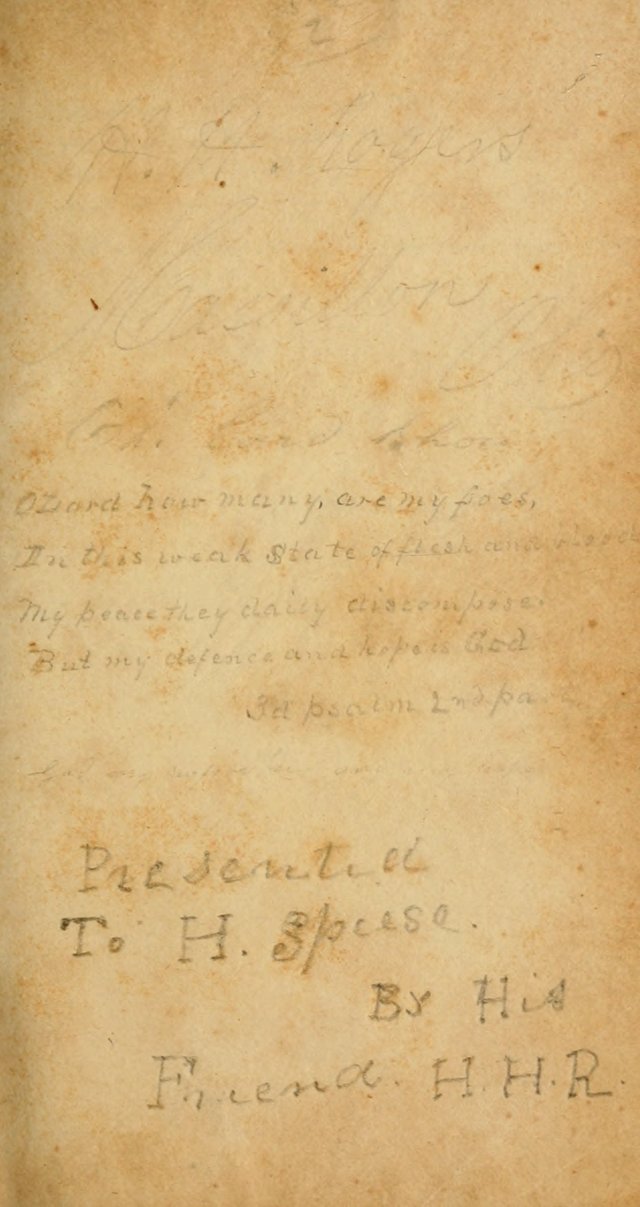 2
H. H. Rogers
Massillon
Ohio
Oh! Lord how
O Lord how many, are my foes,
In this weak State of flesh and blood
My peace they daily discompose.
But my defence and hope is God
3d psalm 2nd part
Presented
To H. Spiese.
By His
Friend. H. H. R.